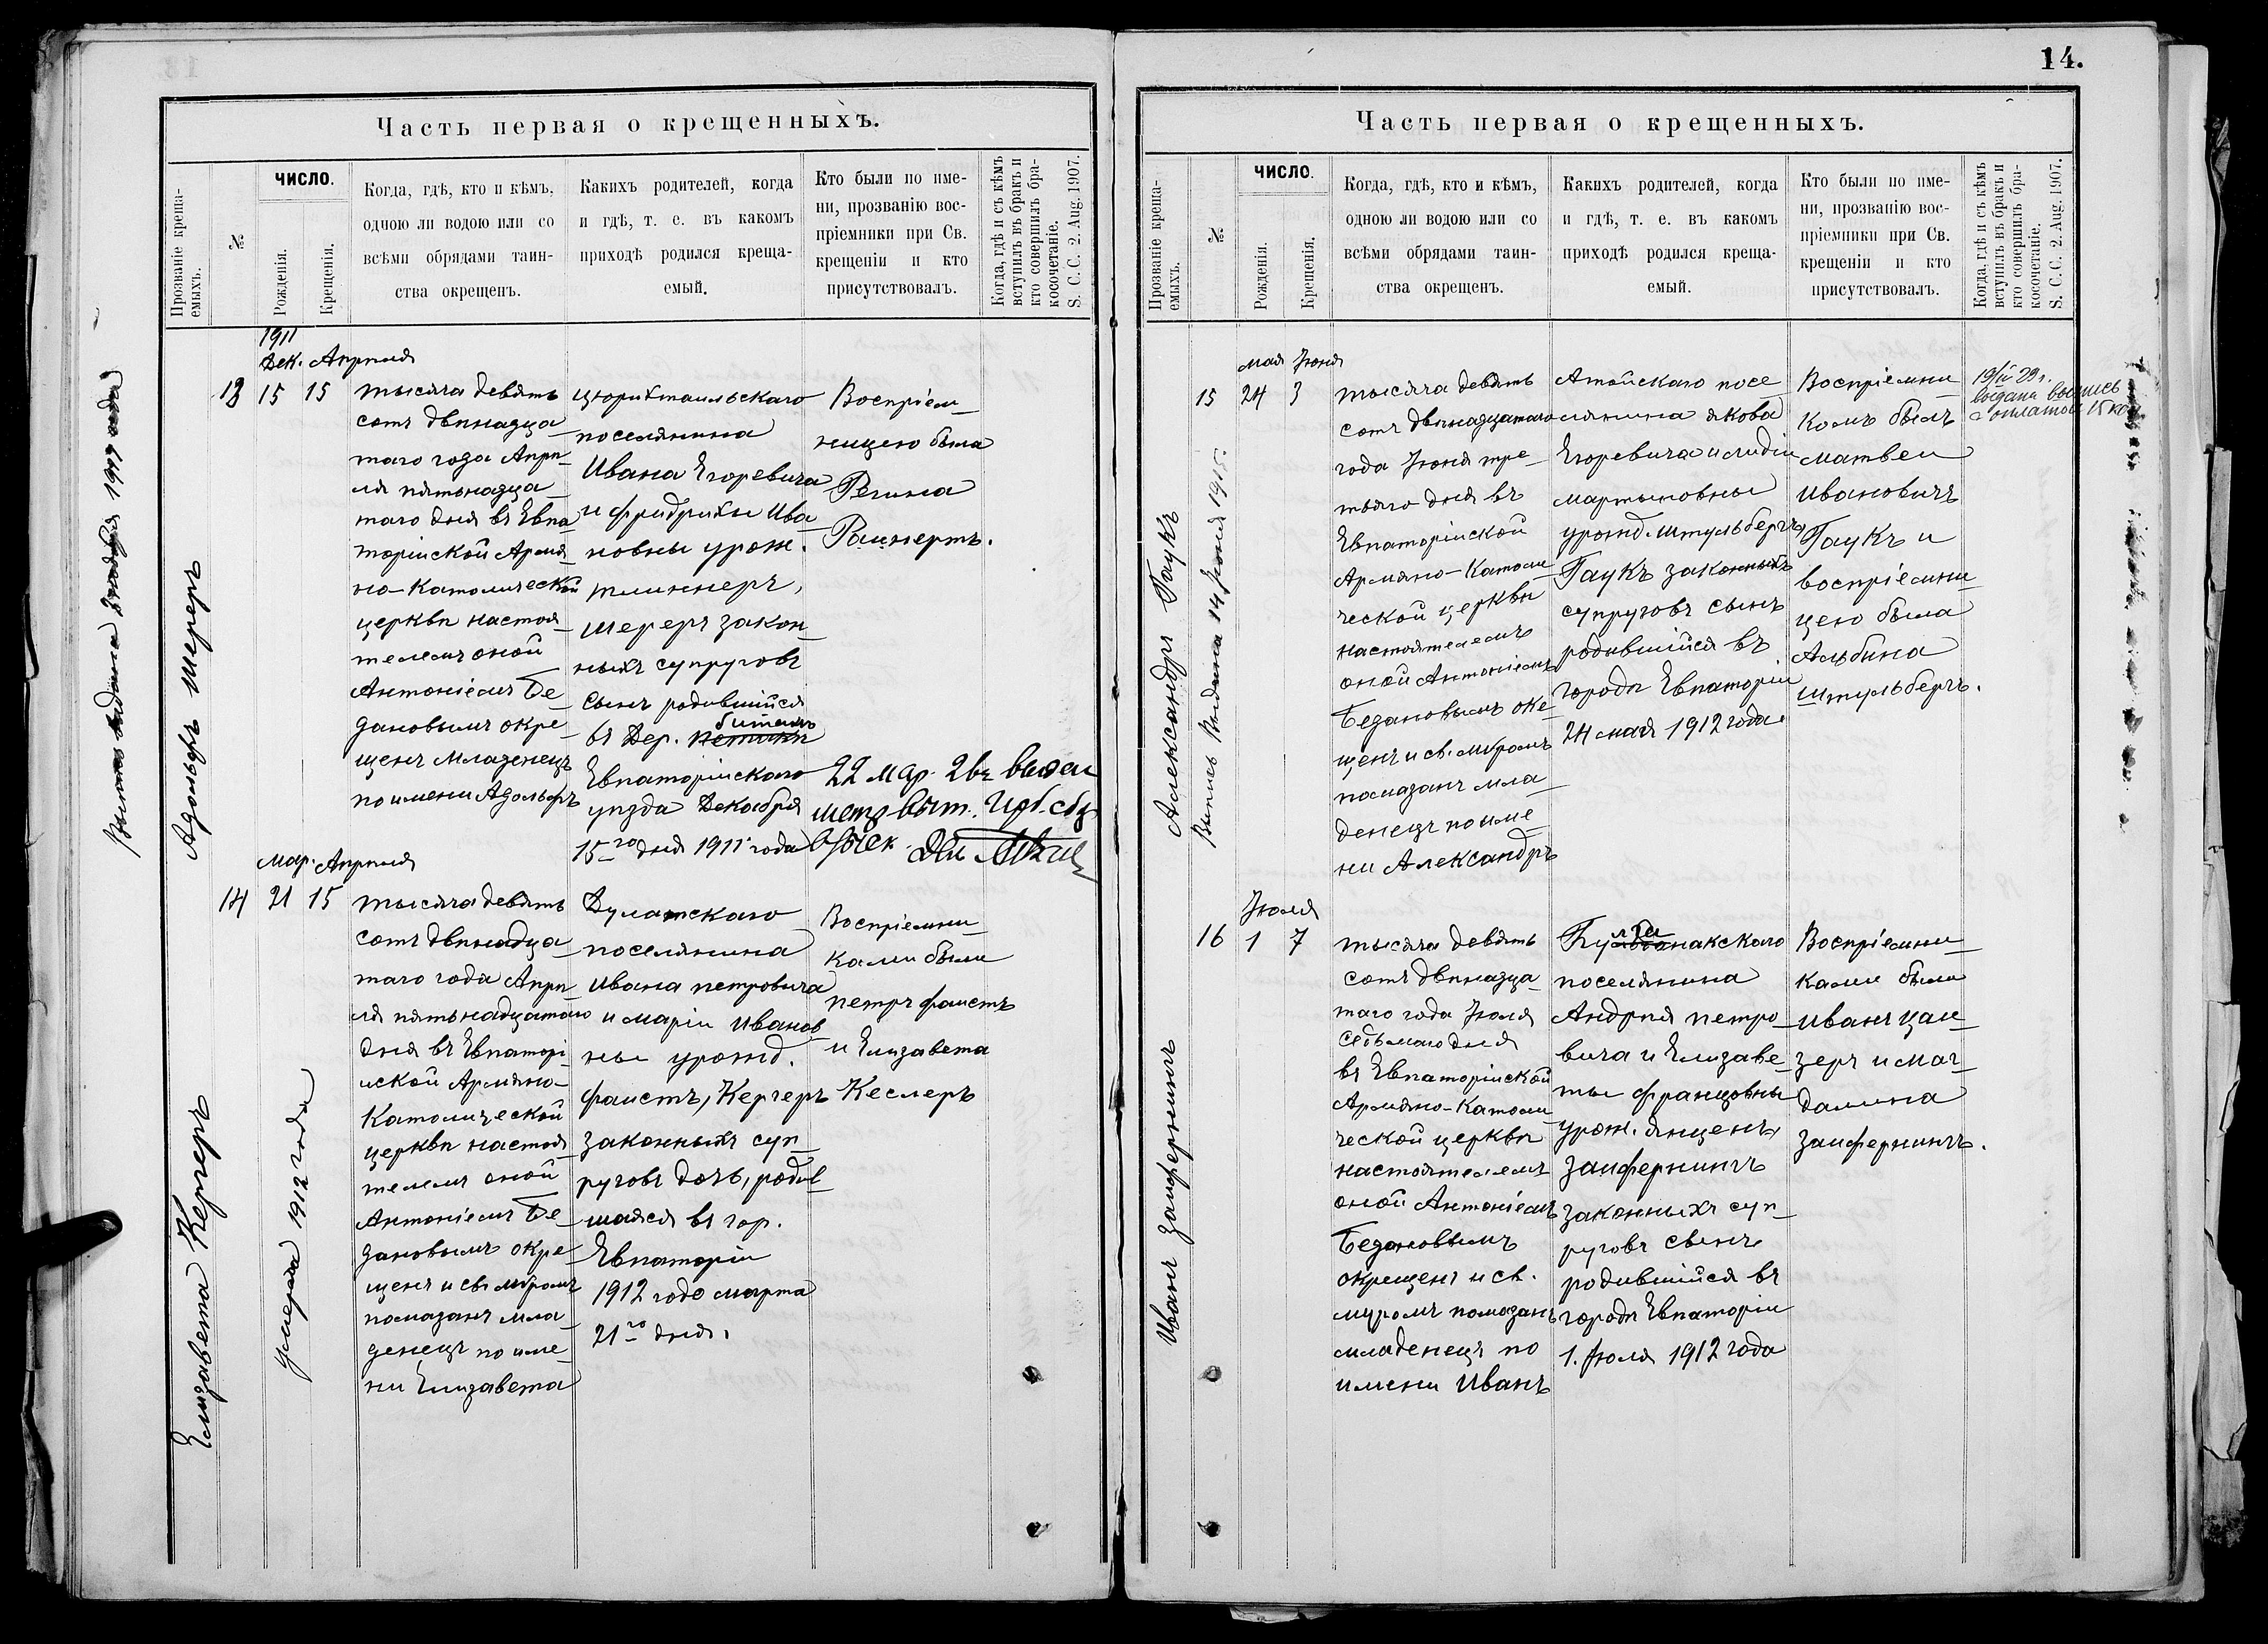 14.
Часть первая о крещенныхъ.
Прозваніе креща-
емыхъ.
№
ЧИСЛО.
Рожденія.
Крещенія.
Когда, гдѣ, кто и кѣмъ,
одною ли водою или со
всѣми обрядами таин-
ства окрещенъ.
Какихъ родителей, когда
и гдѣ, т. е. въ какомъ
приходѣ родился креща-
емый.
Кто были по име-
ни, прозванію вос-
пріемники при Св.
крещеніи и кто
присутствовалъ.
Когда, гдѣ и съ кѣмъ
вступилъ въ бракъ и
кто совершилъ бра-
косочетаніе.
S. C. C. 2. Aug. 1907.
Адольфъ Шереръ
1911
Дек. Апрѣля
13 15 15
тысяча девять
сотъ двѣнадца
таго года Апрѣ
ля пятьнадца
таго дня въ Евпа
торійской Армя
но-Католической
церкви настоя
телемъ оной
Антоніемъ Бе
дановымъ окре
щенъ младенецъ
по имени Адольфъ
Цюрихтальскаго
поселянина
Ивана Егоревича
и Фридрихи Ива
новны урож.
Шереръ закон
ныхъ супруговъ
сынъ родившійся
въ дер.
Евпаторійскаго
уѣзда Декабря
15го дня 1911 года
Воспріем
ницею была
Регина
Рейнертъ.
22 мар.
Елизавета Кергеръ
Умерла 1912 года
мар. Апрѣля
14 21 15
тысяча девять
сотъ двѣнадца
таго года Апрѣ
ля пятьнадцатаго
дня въ Евпаторі
йской Армяно-
Католической
церкви настоя
телемъ оной
Антоніемъ Бе
дановымъ окре
щенъ и св. мѵромъ
помазанъ мла
денецъ по име
ни Елизавета
поселянина
Ивана Петровича
и Маріи Иванов
ны урожд.
Фаистъ, Кергеръ
законныхъ суп
руговъ дочь, родив
шаяся въ гор.
Евпаторіи
1912 года марта
21го дня.
Воспріемни
ками были
Петръ Фаистъ
и Елизавета
Кеслеръ
Часть первая о крещенныхъ.
Прозваніе креща-
емыхъ.
№
ЧИСЛО.
Рожденія.
Крещенія.
Когда, гдѣ, кто и кѣмъ,
одною ли водою или со
всѣми обрядами таин-
ства окрещенъ.
Какихъ родителей, когда
и гдѣ, т. е. въ какомъ
приходѣ родился креща-
емый.
Кто были по име-
ни, прозванію вос-
пріемники при Св.
крещеніи и кто
присутствовалъ.
Когда, гдѣ и съ кѣмъ
вступилъ въ бракъ и
кто совершилъ бра-
косочетаніе.
S. C. C. 2. Aug. 1907.
Александръ Гаукъ
Выпись выдана 14 Іюня 1915.
мая Іюня
15 24 3
тысяча девять
сотъ двѣнадцатаго
года Іюня тре
тьяго дня въ
Евпаторійской
Армяно-Католи
ческой церкви
настоятелемъ
оной Антоніемъ
Бедановымъ окре
щенъ и св. мѵромъ
помазанъ мла
денецъ по име
ни Александръ
Атайскаго посе
лянина Якова
Егоревича и Лидіи
Мартыновны
урожд. Штульбергъ,
Гаукъ законныхъ
супруговъ сынъ
родившійся въ
городѣ Евпаторіи
24 мая 1912 года.
Воспріемни
комъ былъ
Матвей
Ивановичъ
Гаукъ и
воспріемни
цею была
Альбина
Штульбергъ.
выдана выпись
с оплатой 15 ко
Иванъ Зайфернингъ
Іюля
16 1 7
тысяча девять
сотъ двѣнадца
таго года Іюля
седьмаго дня
въ Евпаторійской
Армяно-Католи
ческой церкви
настоятелемъ
оной Антоніемъ
Бедановымъ
окрещенъ и св.
мѵромъ помазанъ
младенецъ по
имени Иванъ
поселянина
Андрѣя Петро
вича и Елизаве
ты Францовны
урож. Янценъ,
Зайфернингъ
законныхъ суп
руговъ сынъ
родившійся въ
городѣ Евпаторіи
1. Іюля 1912 года
Воспріемни
ками были
Иванъ Цай
зеръ и Маг
далина
Зайфернингъ.